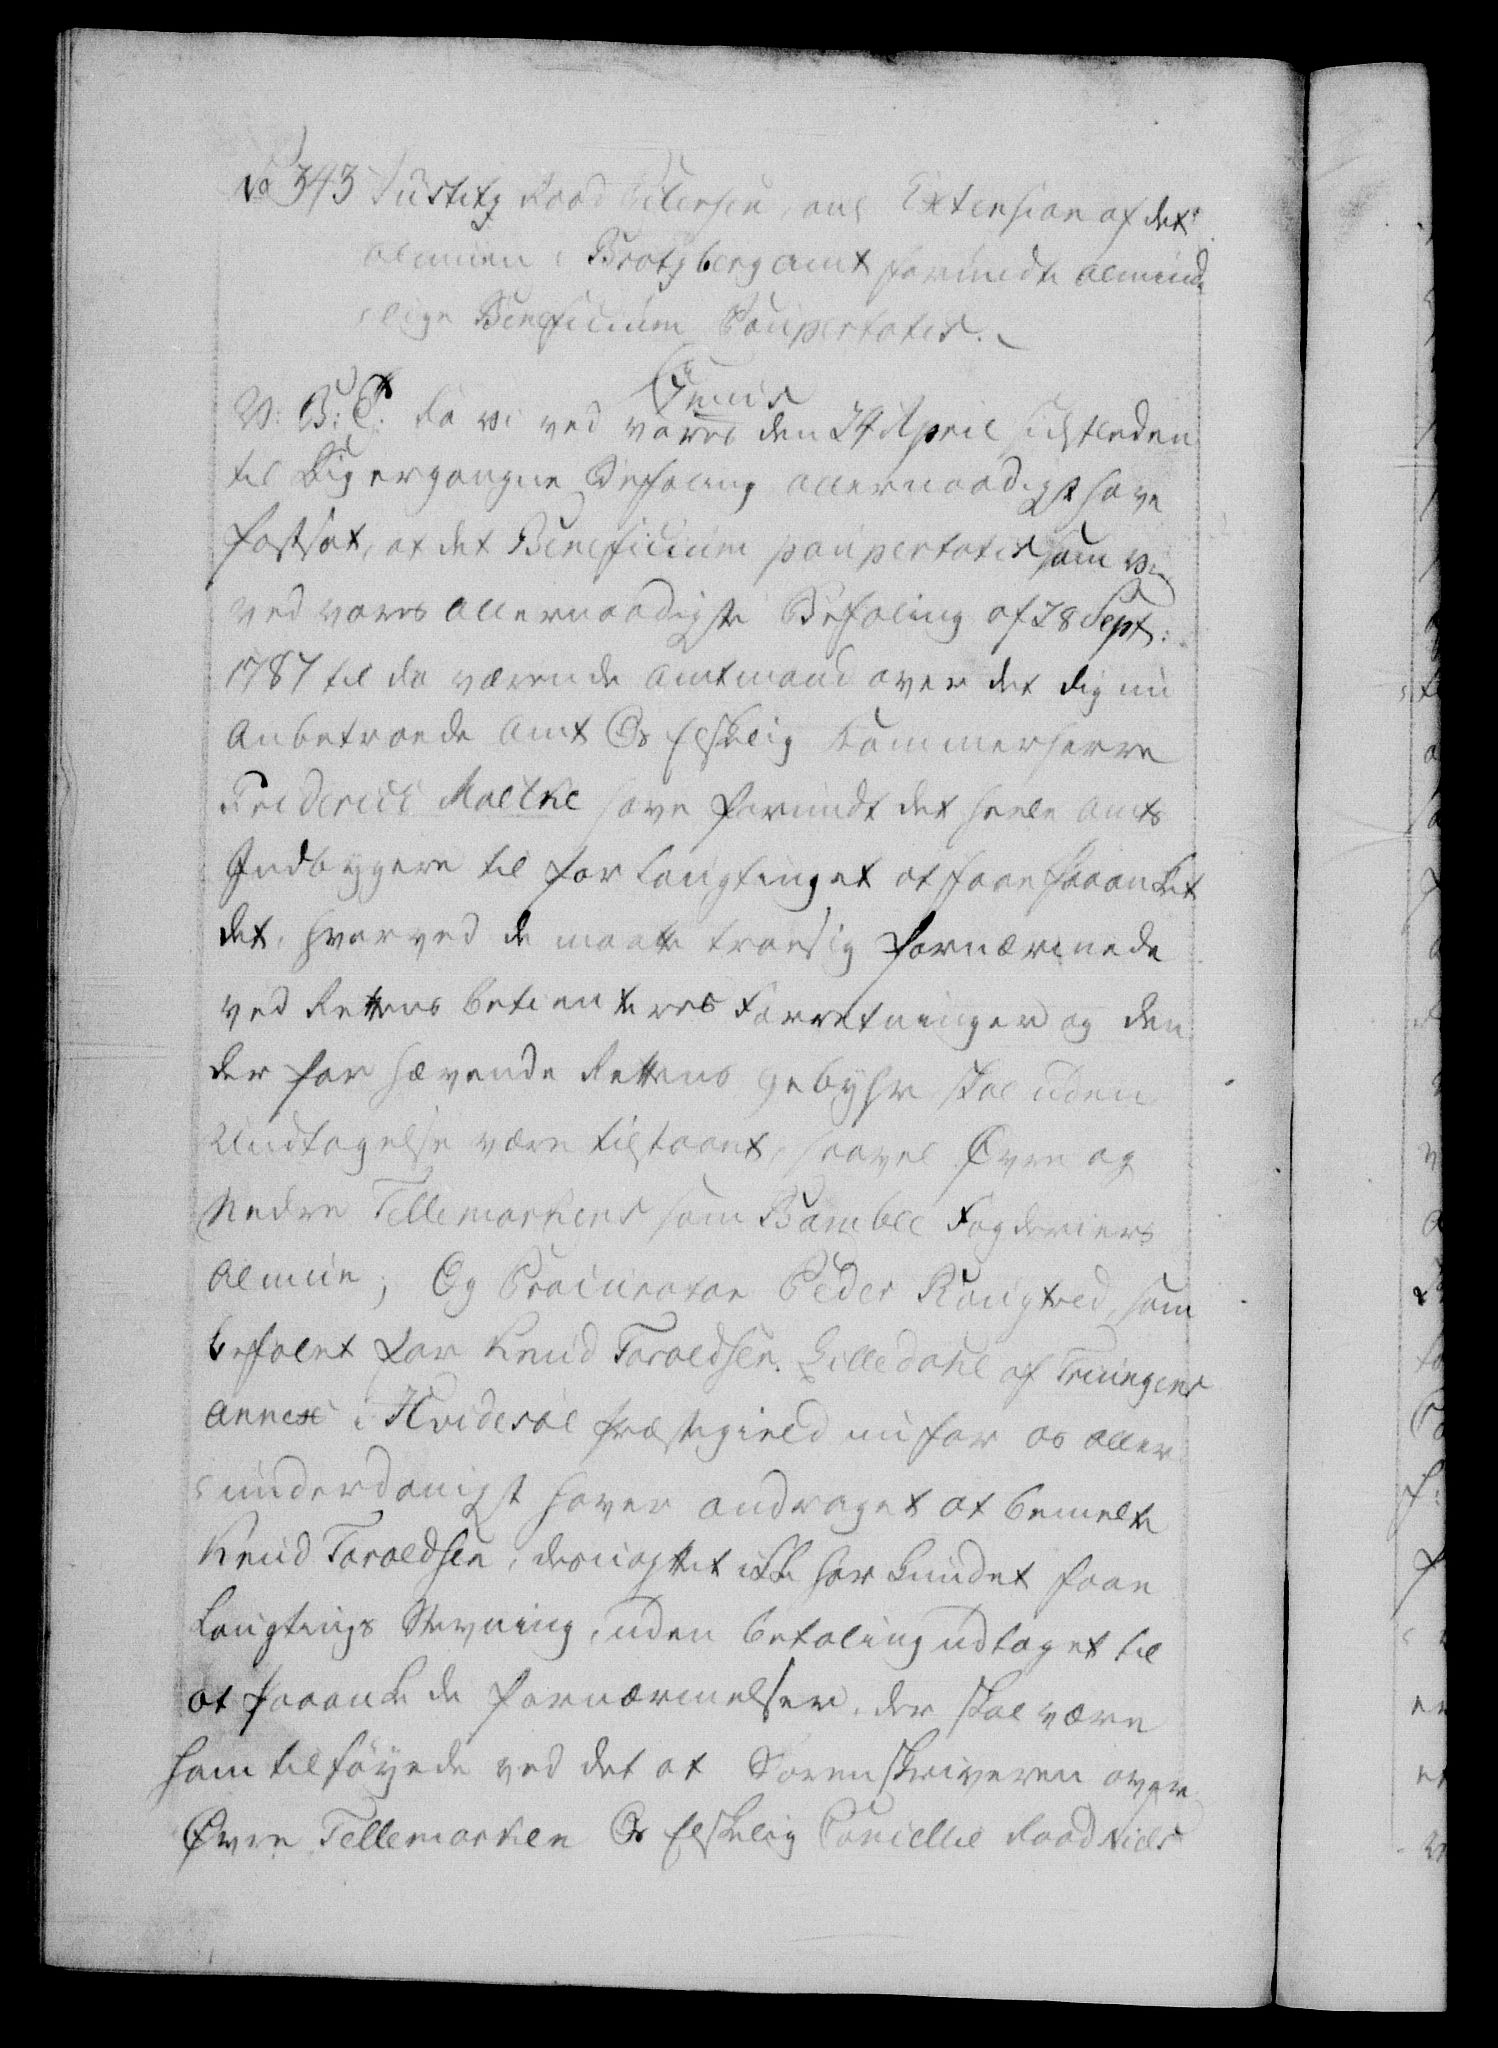 No 343 Justitz Raad Eilersen, ang Extension af det
Almuen i Bratzberg Amt forundte almind¬
elige Beneficium Paupertatis.
V: B: T. Da vi ved vores Gemis den 24 April sidstleden
til Dig ergangne Befaling allernaadigst have
fastsat, at det Beneficium paupertatis som vi
ved vores Allernaadigste Befaling af 28 Sept:
1787 til da værende Amtmand over det dig nu
Anbetroede Amt Os elskelig Kammerherre
Friderich Moltke have forundt det heele Amts
Indbyggere til for Laugtinget at faae paaanket
det, hvorved de maatte troe sig fornærmede
ved Rettens Betienteres Forretninger og den
der for hævende Rettens gebyhr skal uden
Undtagelse være tilstaaet, saavel Øvre og
Nedre Tellemarkens som Bamble Fogderiers
Almue; Og Procurator Peder Kougtved, som
befalet Lav Knud Taraldsen Lilledahl af Treungens
Annex i Hvidesøe Præstegield nu for os aller
underdanigst haver andraget at bemelte
Knud Taraldsen, desuagtet ikke har kundet faae
Laugtings Stevning, uden betaling udtaget til
at paaanke de fornærmelser, der skal være
ham tilføyede ved det at Sorenskriveren over
Øvre Tellemarken Os elskelig Cancellie Raad Niels